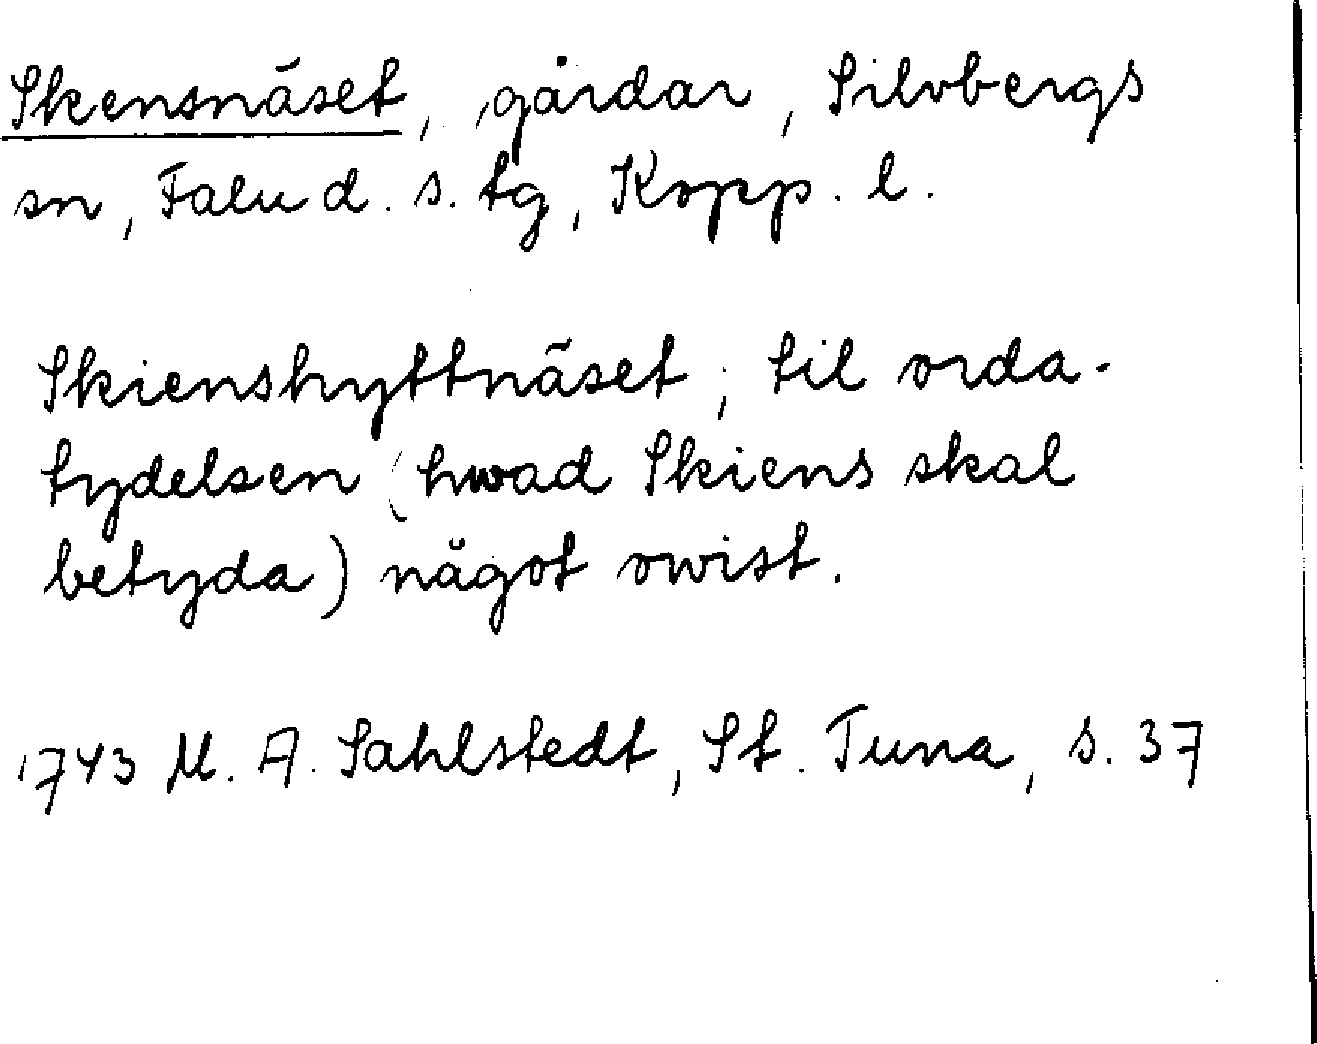 Skensnäset, gårdar, Silvbergs
sn, Falu d. s. tg, Kopp. l.
Skienshyttnäset; til orda-
tydelsen (hwad Skiens skal
betyda) något owist.
1743 M. A. Sahlstedt, St. Tuna, s. 37